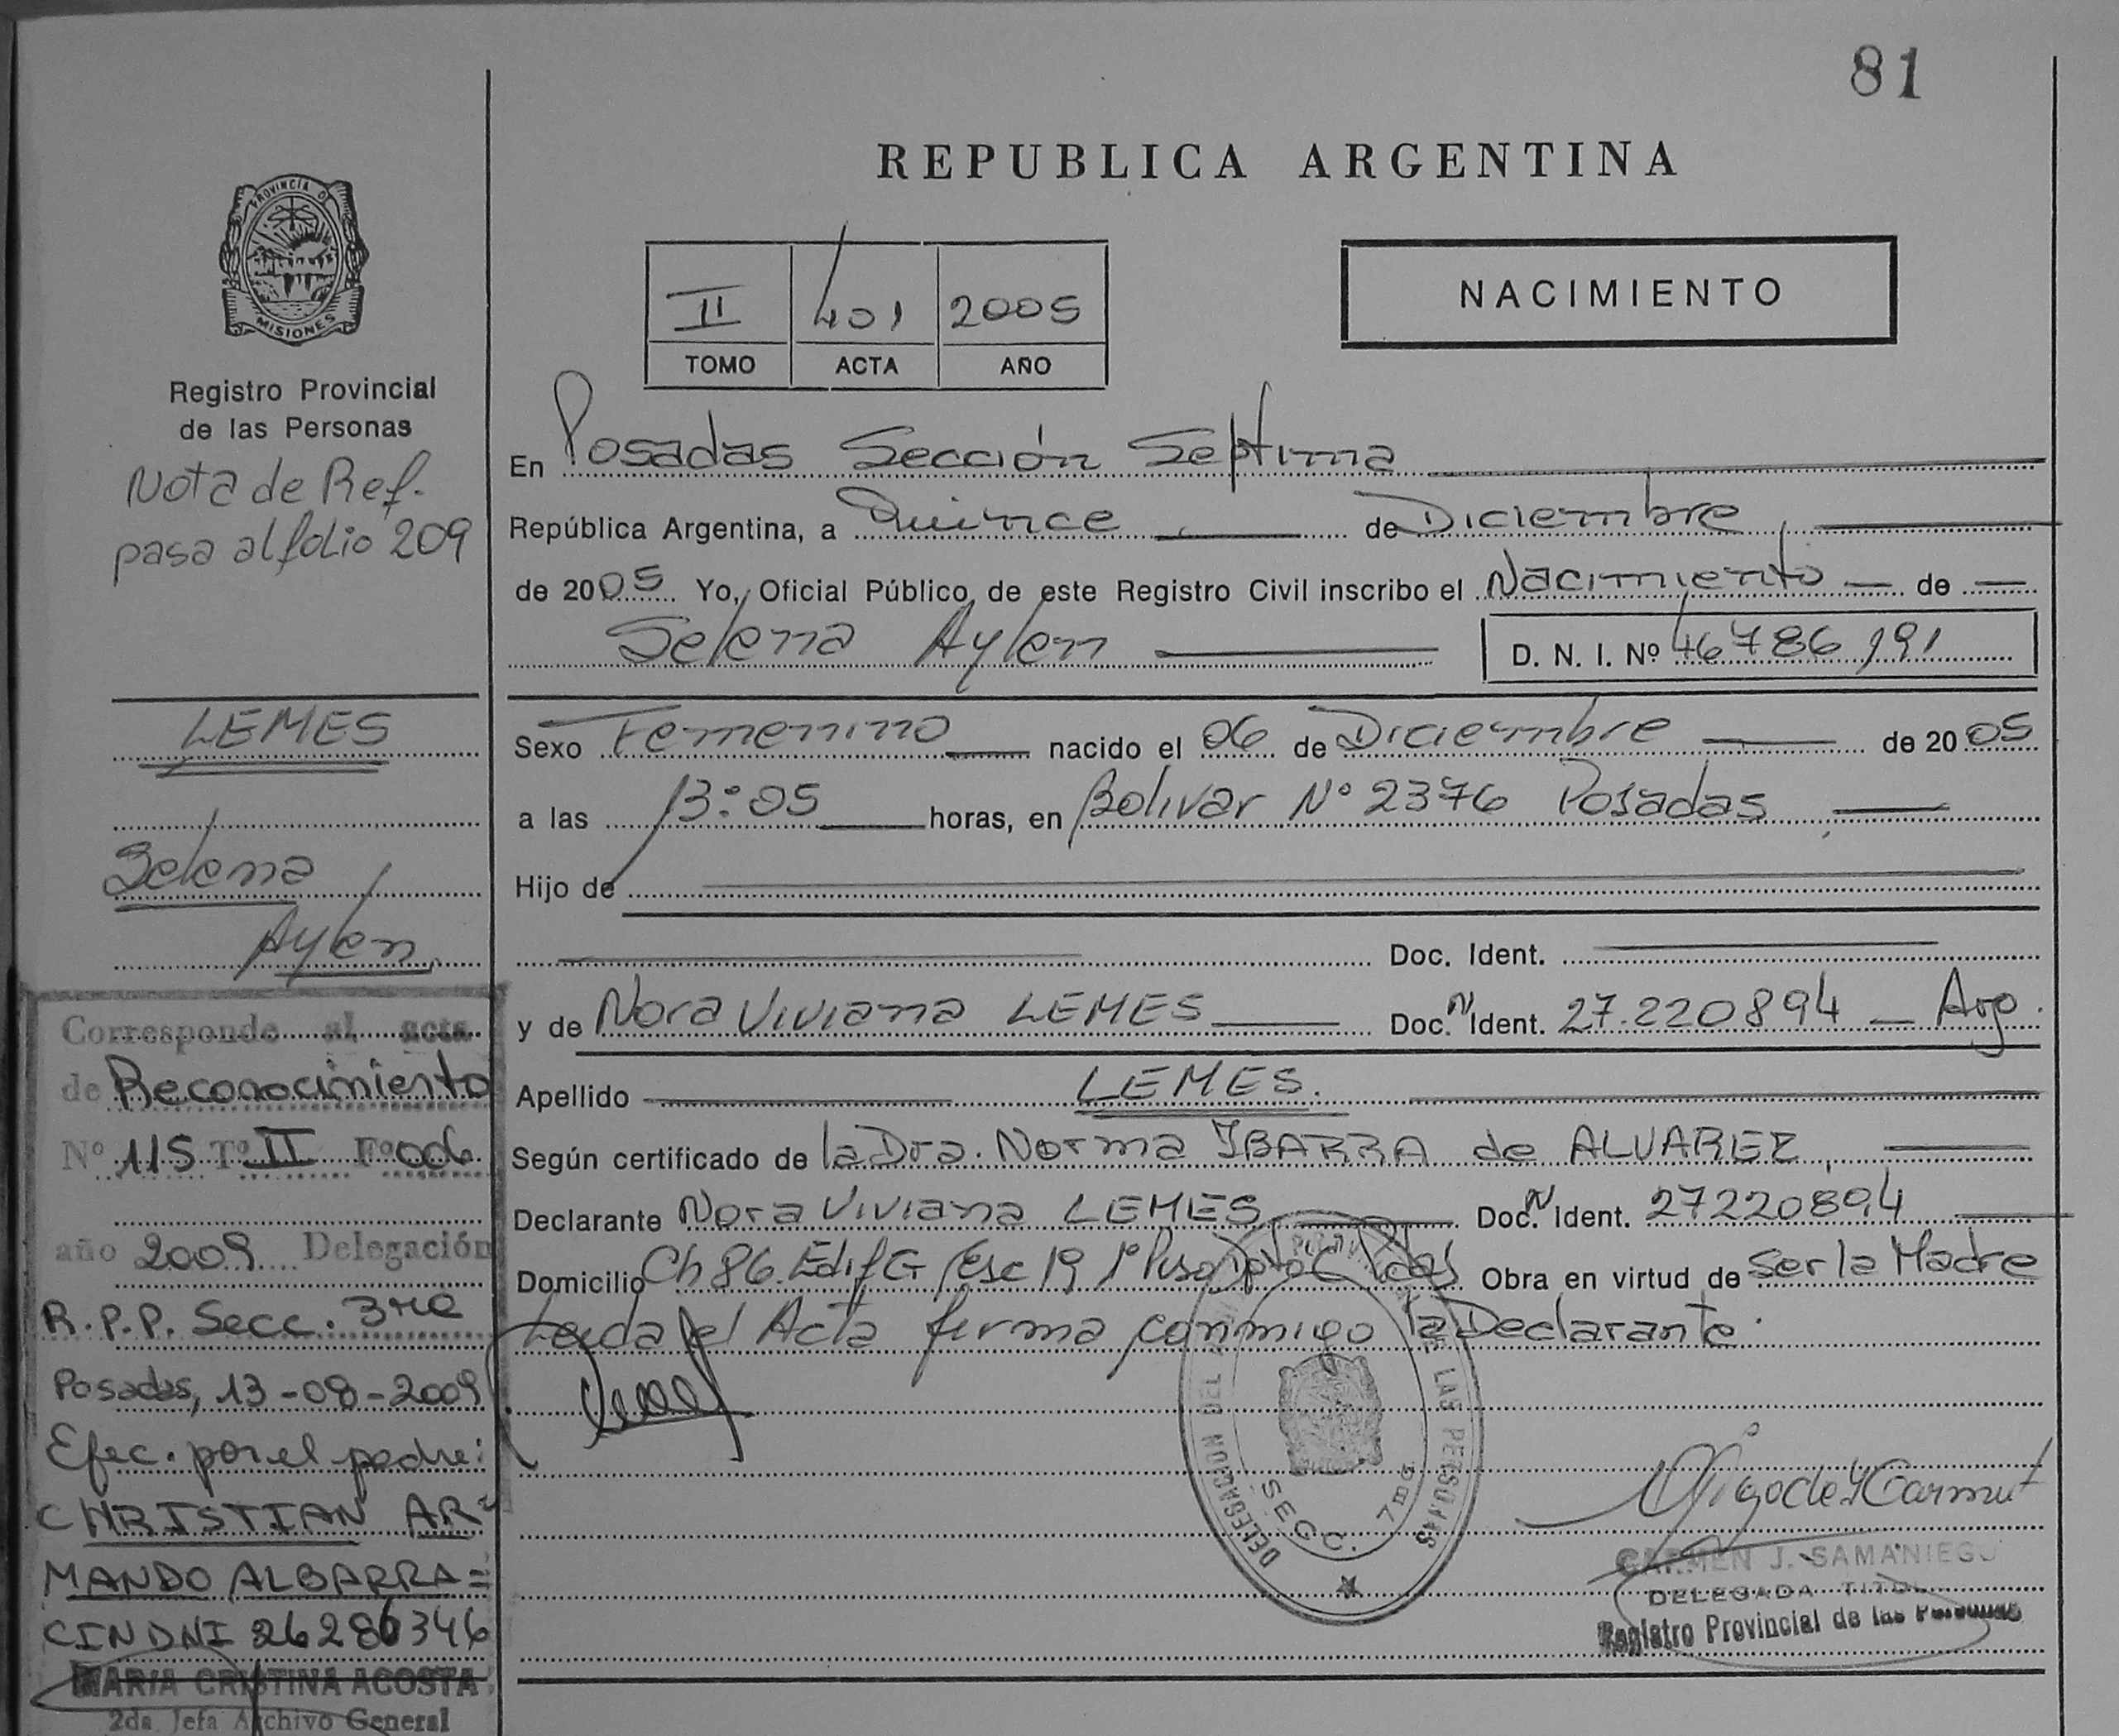 81
REPUBLICA ARGENTINA
PROVINCIA D
MISIONES
Registro Provincial
de las Personas
Nota de Ref.
pasa al folio 209
LEMES
Selena
Aylen
II 401 2005
TOMO ACTA AÑO
NACIMIENTO
En Posadas Sección Septima
República Argentina, a Quince de Diciembre
de 2005 Yo, Oficial Público de este Registro Civil inscribo el Nacimiento de
Selena Aylen D. N. I. Nº 46786191
Sexo Femenino nacido el 06 de Diciembre de 2005
a las 13:05 horas, en Bolivar Nº 2376 Posadas
Hijo de
Doc. Ident.
y de Nora Viviana LEMES Doc. N Ident. 27.220894 Arg.
Apellido LEMES.
Según certificado de la Dra. Norma IBARRA de ALVAREZ
Declarante Nora Viviana LEMES Doc. N Ident. 27220894
Domicilio Ch 86 Edif G Esc 19 1º Piso Dpto C Pdas Obra en virtud de Ser la Madre
Leida el Acta firma conmigo la Declarante.
Corresponde al acta
de Reconocimiento
Nº 115 Tº II Fº 006
año 2009 Delegación
R.P.P. Secc. 3ra
Posadas, 13-08-2009
Efec. por el padre:
CHRISTIAN AR=
MANDO ALBARRA=
CIN DNI 26286346
MARIA CRISTINA ACOSTA
2da Jefa Archivo General
DELEGACION DEL LAS PERSONAS
SECC. 7ma
CARMEN J. SAMANIEGO
DELEGADA TITUL
Registro Provincial de las Personas